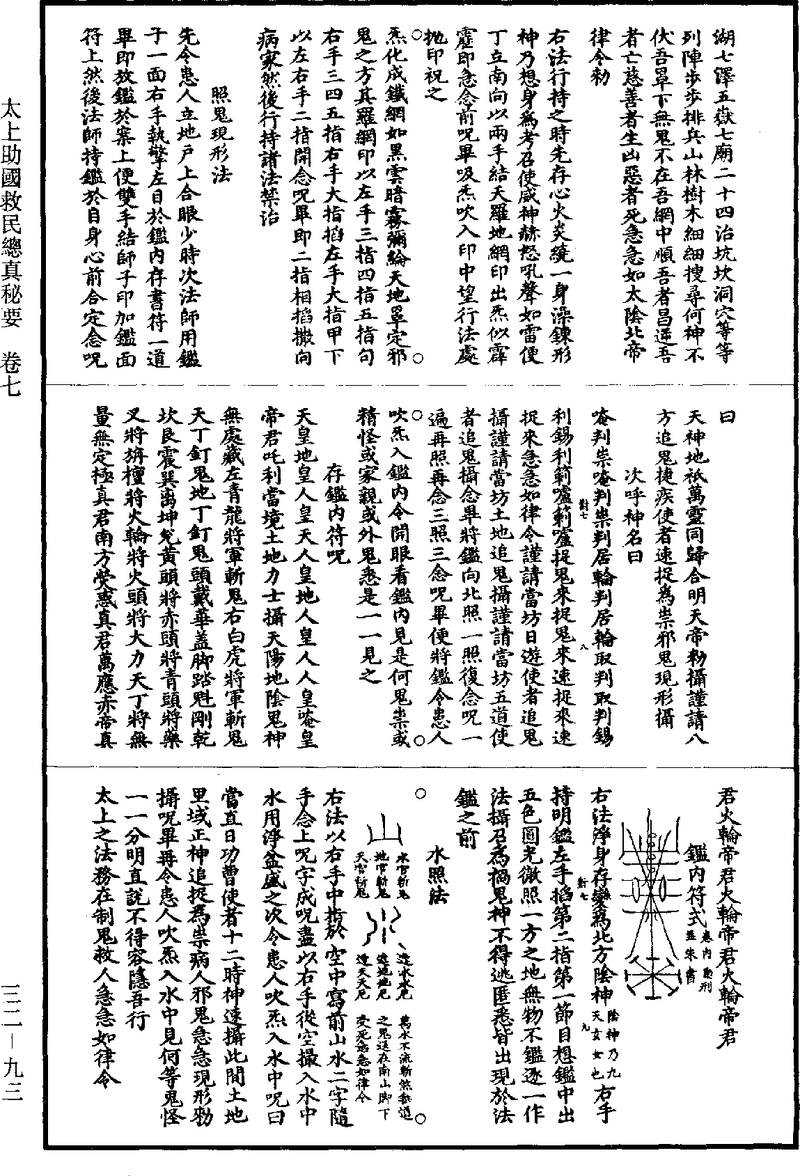 湖七澤五嶽七廟二十四治坑坎洞穴等等
列陣步步排兵山林樹木細細搜尋何神不
伏吾罩下無鬼不在吾網中順吾者昌逆吾
者亡慈善者生凶惡者死急急如太陰北帝
律令勑
右法行持之時先存心火炎繞一身澡鍊形
神乃想身為考召使威神赫怒吼聲如雷便
丁立南向以兩手結天羅地網印出炁似霹
靂即急念前呪畢吸炁吹入印中望行法處
抛印祝之
炁化成鐵網如黑雲暗霧彌綸天地罩定邪
鬼之方其羅網印以左手三指四指五指句
右手三四五指右手大指掐左手大指甲下
以左右手二指開念呪畢即二指相掐撒向
病家然後行持諸法禁治
照鬼現形法
先令患人立地戶上合眼少時次法師用鑑
子一面右手執擎左目於鑑內存書符一道
畢即放鑑於案上便雙手結師子印加鑑面
符上然後法師持鑑於自身心前合定念呪
太上助國救民總真秘要 卷七
三二—九三
曰
天神地祇萬靈同歸合明天帝勑攝謹請八
方追鬼捷疾使者速捉為祟邪鬼現形攝
次呼神名曰
唵判祟唵判祟判居輪判居輪取判取判錫
利錫利莿嚧莿嚧捉鬼來捉鬼來速捉來速
捉來急急如律令謹請當坊日遊使者追鬼
攝謹請當坊土地追鬼攝謹請當坊五道使
者追鬼攝念畢將鑑向北照一照復念呪一
遍再照再念三照三念呪畢便將鑑令患人
吹炁入鑑內令開眼看鑑內見是何鬼祟或
精怪或家親或外鬼悉是一一見之
存鑑內符呪
天皇地皇人皇天人皇地人皇人人皇唵皇
帝君吒利當境土地力士攝天陽地陰鬼神
無處藏左青龍將軍斬鬼右白虎將軍斬鬼
天丁釘鬼地丁釘鬼頭戴華蓋脚踏魁剛乾
坎艮震巽离坤兌黃頭將赤頭將青頭將藥
叉將旃檀將火輪將火頭將大力天丁將無
量無定極真君南方熒惑真君萬應赤帝真
君火輪帝君火輪帝君火輪帝君
鑑內符式
右法淨身存變為北方陰神陰神乃九天玄女也右手
持明鑑左手掐第二指第一節目想鑑中出
五色圓光徹照一方之地無物不鑑逐一作
法攝召為禍鬼神不得逃匿悉皆出現於法
鑑之前
水照法
水官斬鬼
地官斬鬼
天官斬鬼
逢水水厄
逢地地厄
逢天天厄
萬水不流斬煞我道
之鬼送在南山脚下
受死急急如律令
右法以右手中指於空中寫前山水二字隨
手念上呪字成呪盡以右手從空撮入水中
水用淨盆盛之次令患人吹炁入水中呪曰
當直日功曹使者十二時神速攝此間土地
里域正神追捉為祟病人邪鬼急急現形勑
攝呪畢再令患人吹炁入水中見何等鬼怪
一一分明直說不得容隱吾行
太上之法務在制鬼救人急急如律令